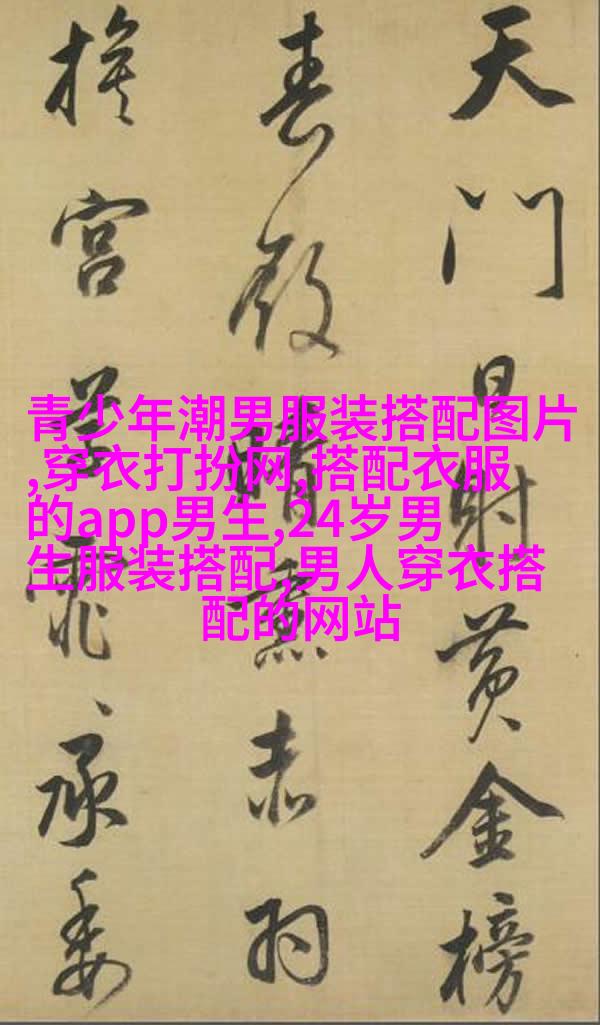 天門日射黃金榜
春殿晴熏赤羽
宮草霏、承委
青少年潮男服装搭配图片
,穿衣打扮网,搭配衣服
的app男生,24岁男
生服装搭配,男人穿衣搭
配的网站